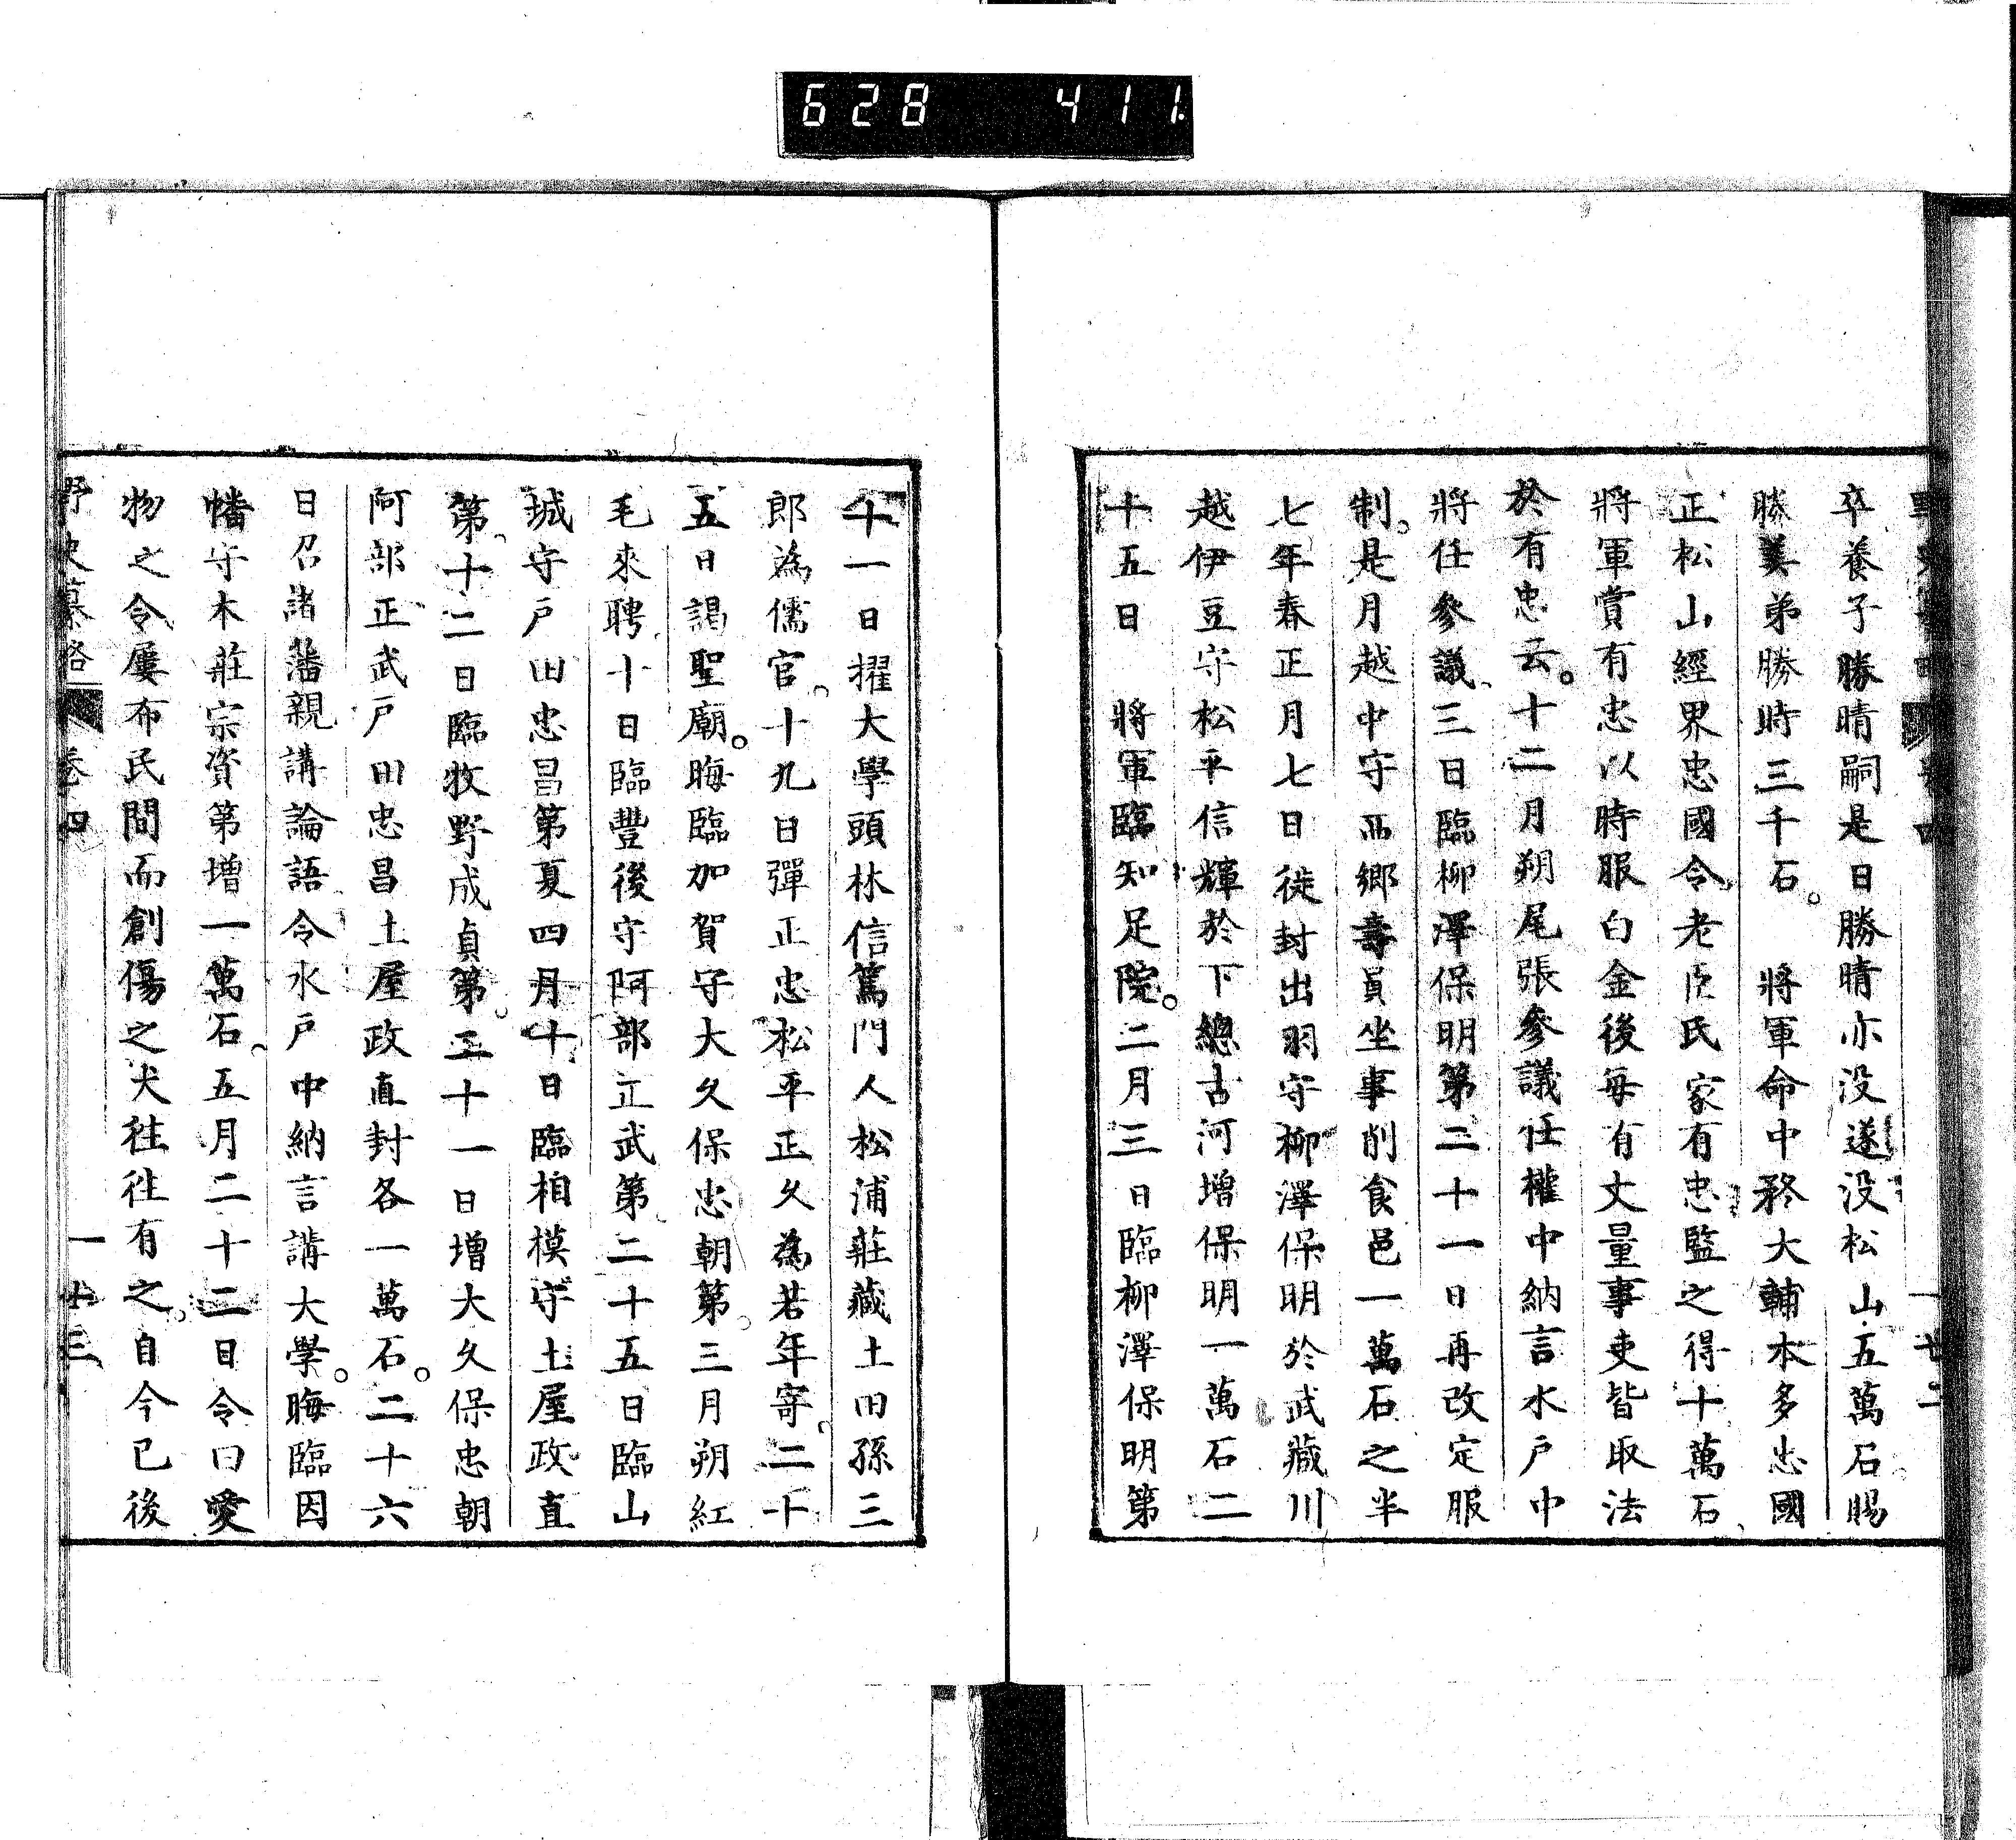 628 411
卒養子勝晴嗣是日勝晴亦没遂没松山五萬石賜
勝美弟勝時三千石。 將軍命中務大輔本多忠國
正松山經界忠國令老臣氏家有忠監之得十萬石
將軍賞有忠以時服白金後每有丈量事吏皆取法
於有忠云。十二月朔尾張參議任權中納言水戶中
將任參議三日臨柳澤保明第二十一日再改定服
制。是月越中守西鄉壽員坐事削食邑一萬石之半
七年春正月七日徙封出羽守柳澤保明於武藏川
越伊豆守松平信輝於下總古河增保明一萬石二
十五日 將軍臨知足院。二月三日臨柳澤保明第
十一日擢大學頭林信篤門人松浦莊藏土田孫三
郎為儒官。十九日彈正忠松平正久為若年寄。二十
五日謁聖廟。晦臨加賀守大久保忠朝第。三月朔紅
毛來聘十日臨豐後守阿部正武第二十五日臨山
城守戶田忠昌第夏四月十日臨相模守土屋政直
第十二日臨牧野成貞第。二十一日增大久保忠朝
阿部正武戶田忠昌土屋政直封各一萬石。二十六
日召諸藩親講論語令水戶中納言講大學。晦臨因
幡守本莊宗資第增一萬石。五月二十二日令曰愛
物之令屢布民間而創傷之犬往往有之。自今已後
野史纂略 卷四 一 十三